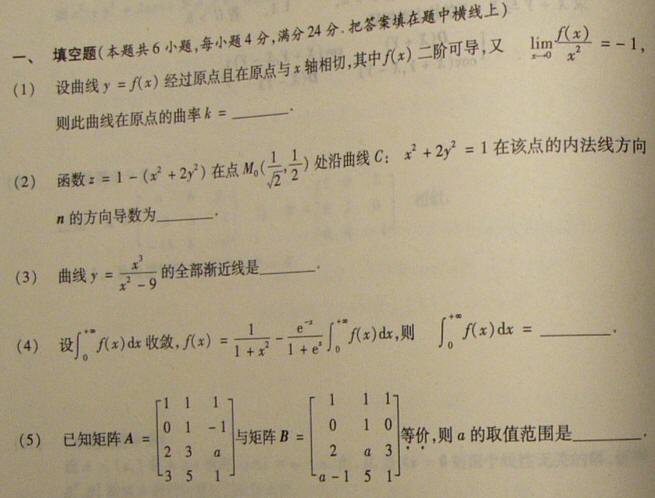 一、 填空题(本题共6小题,每小题4分,满分24分.把答案填在题中横线上)
(1) 设曲线 y = f(x) 经过原点且在原点与 x 轴相切,其中 f(x) 二阶可导,又 lim_{x→0} f(x)/x² = -1,
则此曲线在原点的曲率 k = ______.
(2) 函数 z = 1 - (x² + 2y²) 在点 M₀(1/√2, 1/2) 处沿曲线 C: x² + 2y² = 1 在该点的内法线方向
n 的方向导数为______.
(3) 曲线 y = x³/(x² - 9) 的全部渐近线是______.
(4) 设∫₀^{+∞} f(x)dx 收敛, f(x) = 1/(1 + x²) - e^{-x}/(1 + e^x) ∫₀^{+∞} f(x)dx,则 ∫₀^{+∞} f(x)dx = ______.
(5) 已知矩阵 A = [1 1 1; 0 1 -1; 2 3 a; 3 5 1] 与矩阵 B = [1 1 1; 0 1 0; 2 a 3; a-1 5 1] 等价,则 a 的取值范围是______.